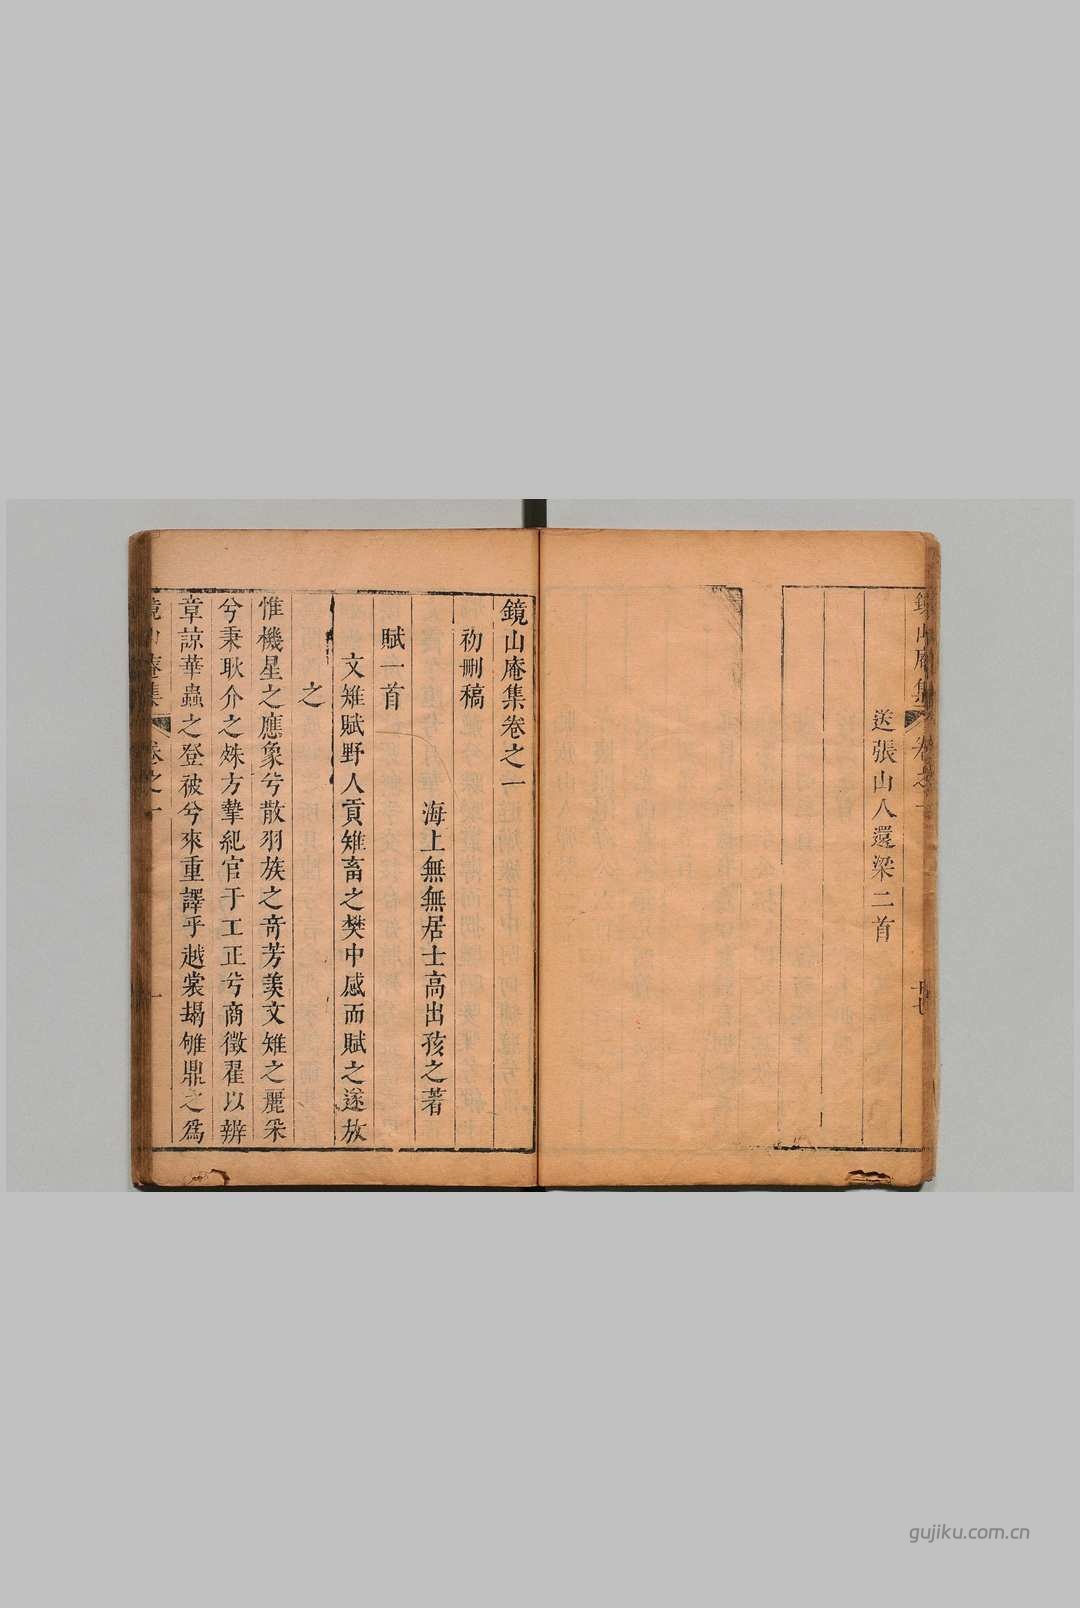 送張山人還梁二首
鏡山庵集卷之一
初刪稿
海上無無居士高出孩之著
賦一首
文雉賦野人貢雉畜之樊中感而賦之遂放
之
惟機星之應象兮散羽族之奇芳羨文雉之麗采
兮秉耿介之姝方摯紀官于工正兮商徵翟以辨
章諒華蟲之登被兮來重譯乎越裳塌雊鼎之爲
鏡山庵集
卷之一
一
gujiku.com.cn